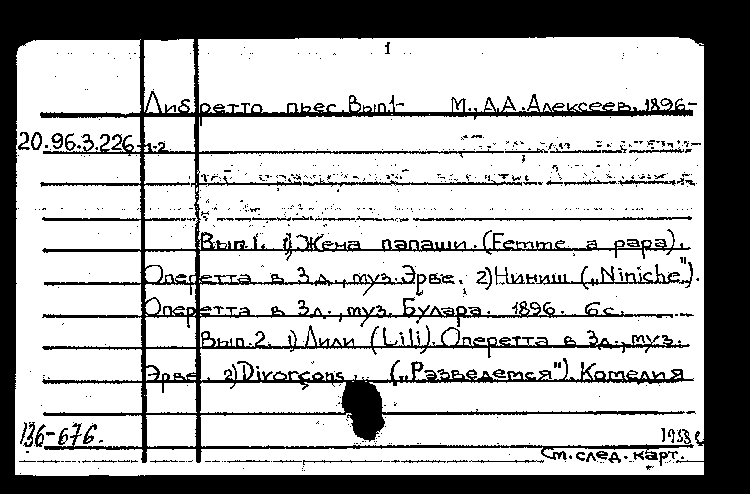 1
Либретто пьес. Вып1- М., А.А. Алексеев, 1896-
20.96.3.226-1-2
Вып.1. 1) Жена папаши. (Femme a papa).
Оперетта в 3д., муз. Эрве. 2) Ниниш („Niniche").
Оперетта в 3д., муз. Булара. 1896. 6с.
Вып.2. 1) Лили (Lili). Оперетта в 3д., муз.
Эрве. 2) Divorçons... („Разведемся"). Комедия
136-676.
См. след. карт.